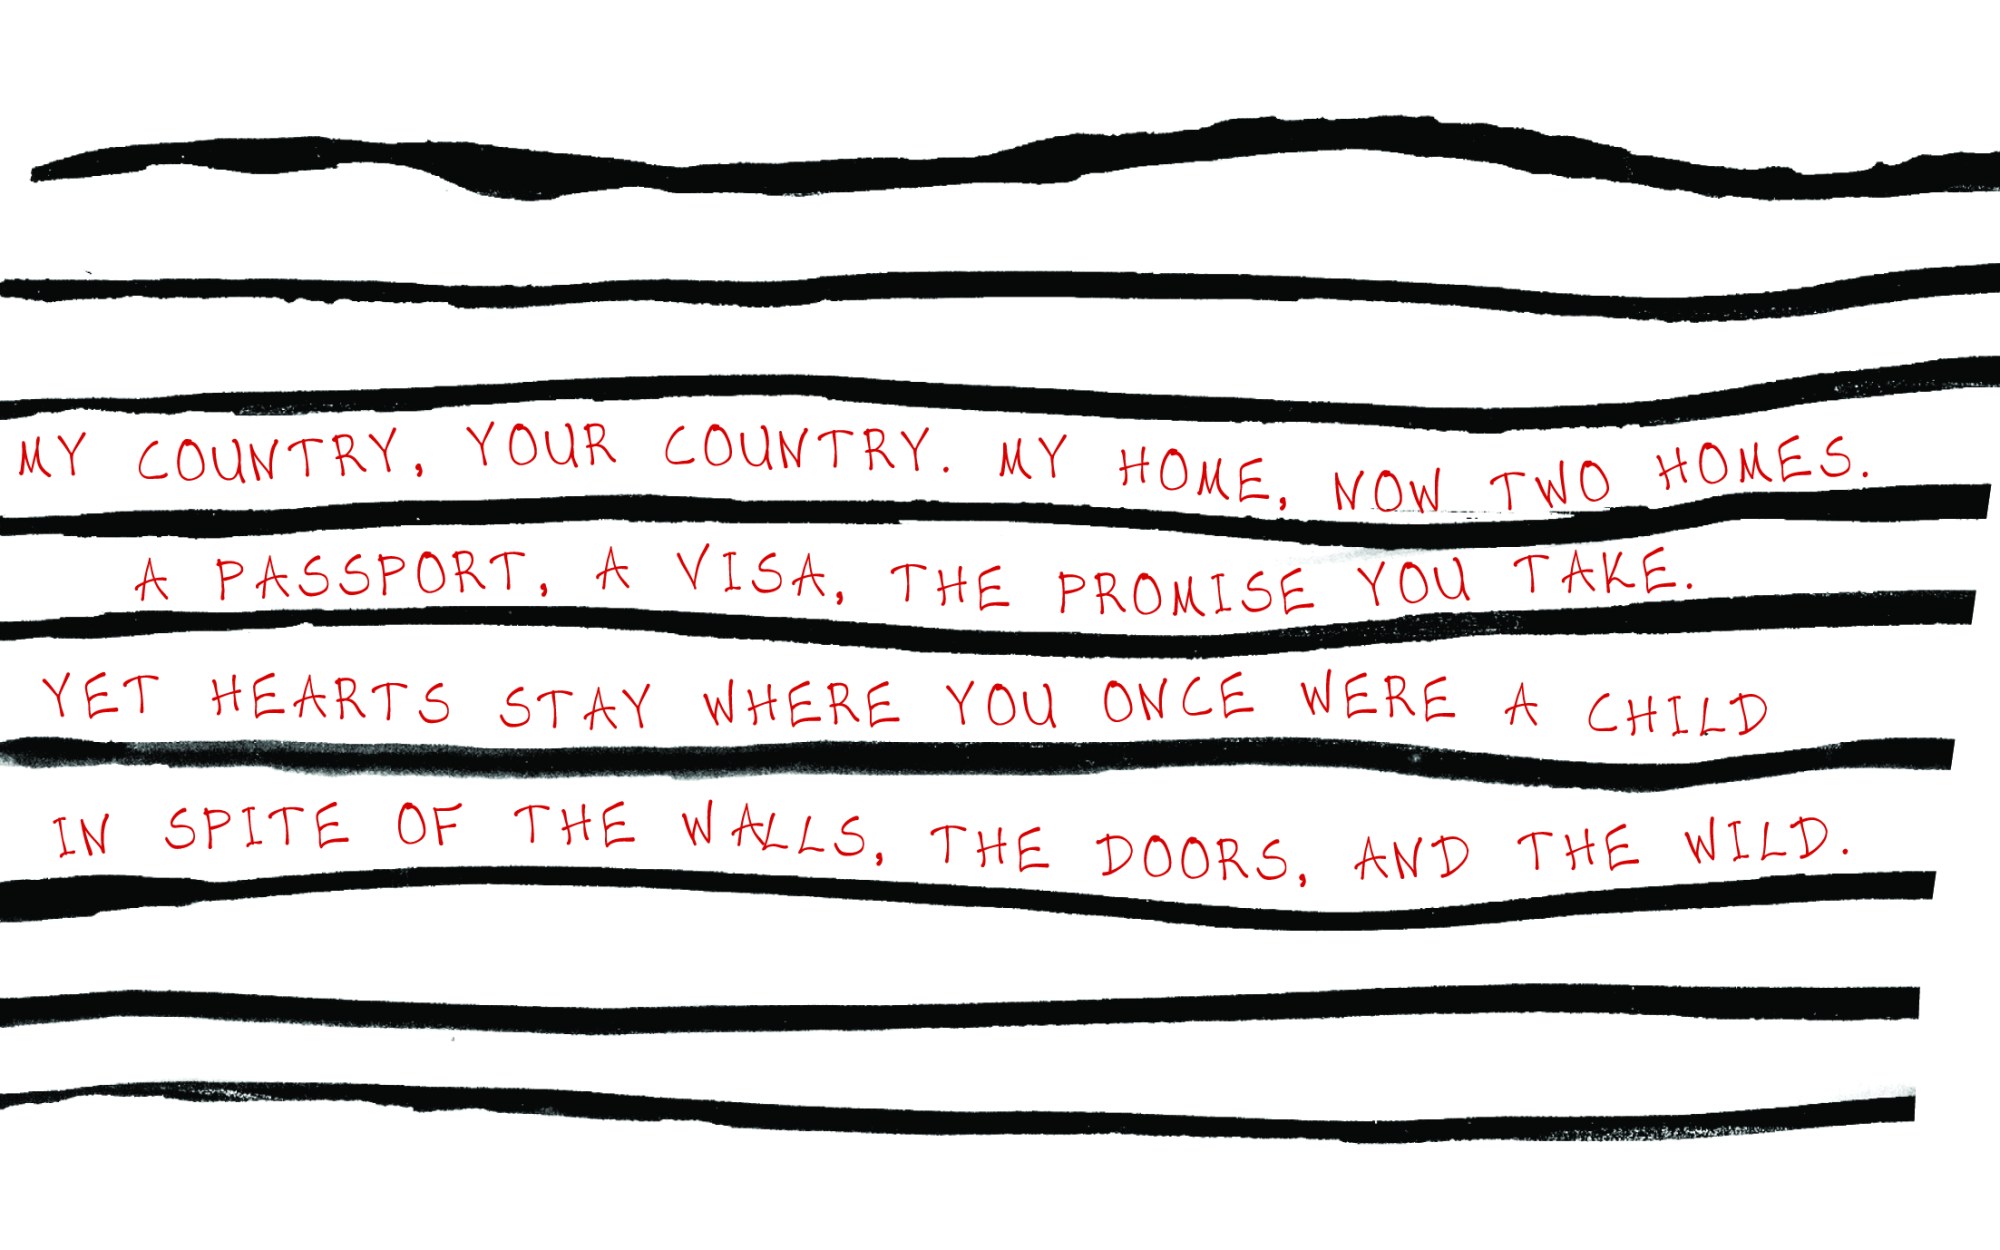 MY COUNTRY, YOUR COUNTRY. MY HOME, NOW TWO HOMES.
A PASSPORT, A VISA, THE PROMISE YOU TAKE.
YET HEARTS STAY WHERE YOU ONCE WERE A CHILD
IN SPITE OF THE WALLS, THE DOORS, AND THE WILD.